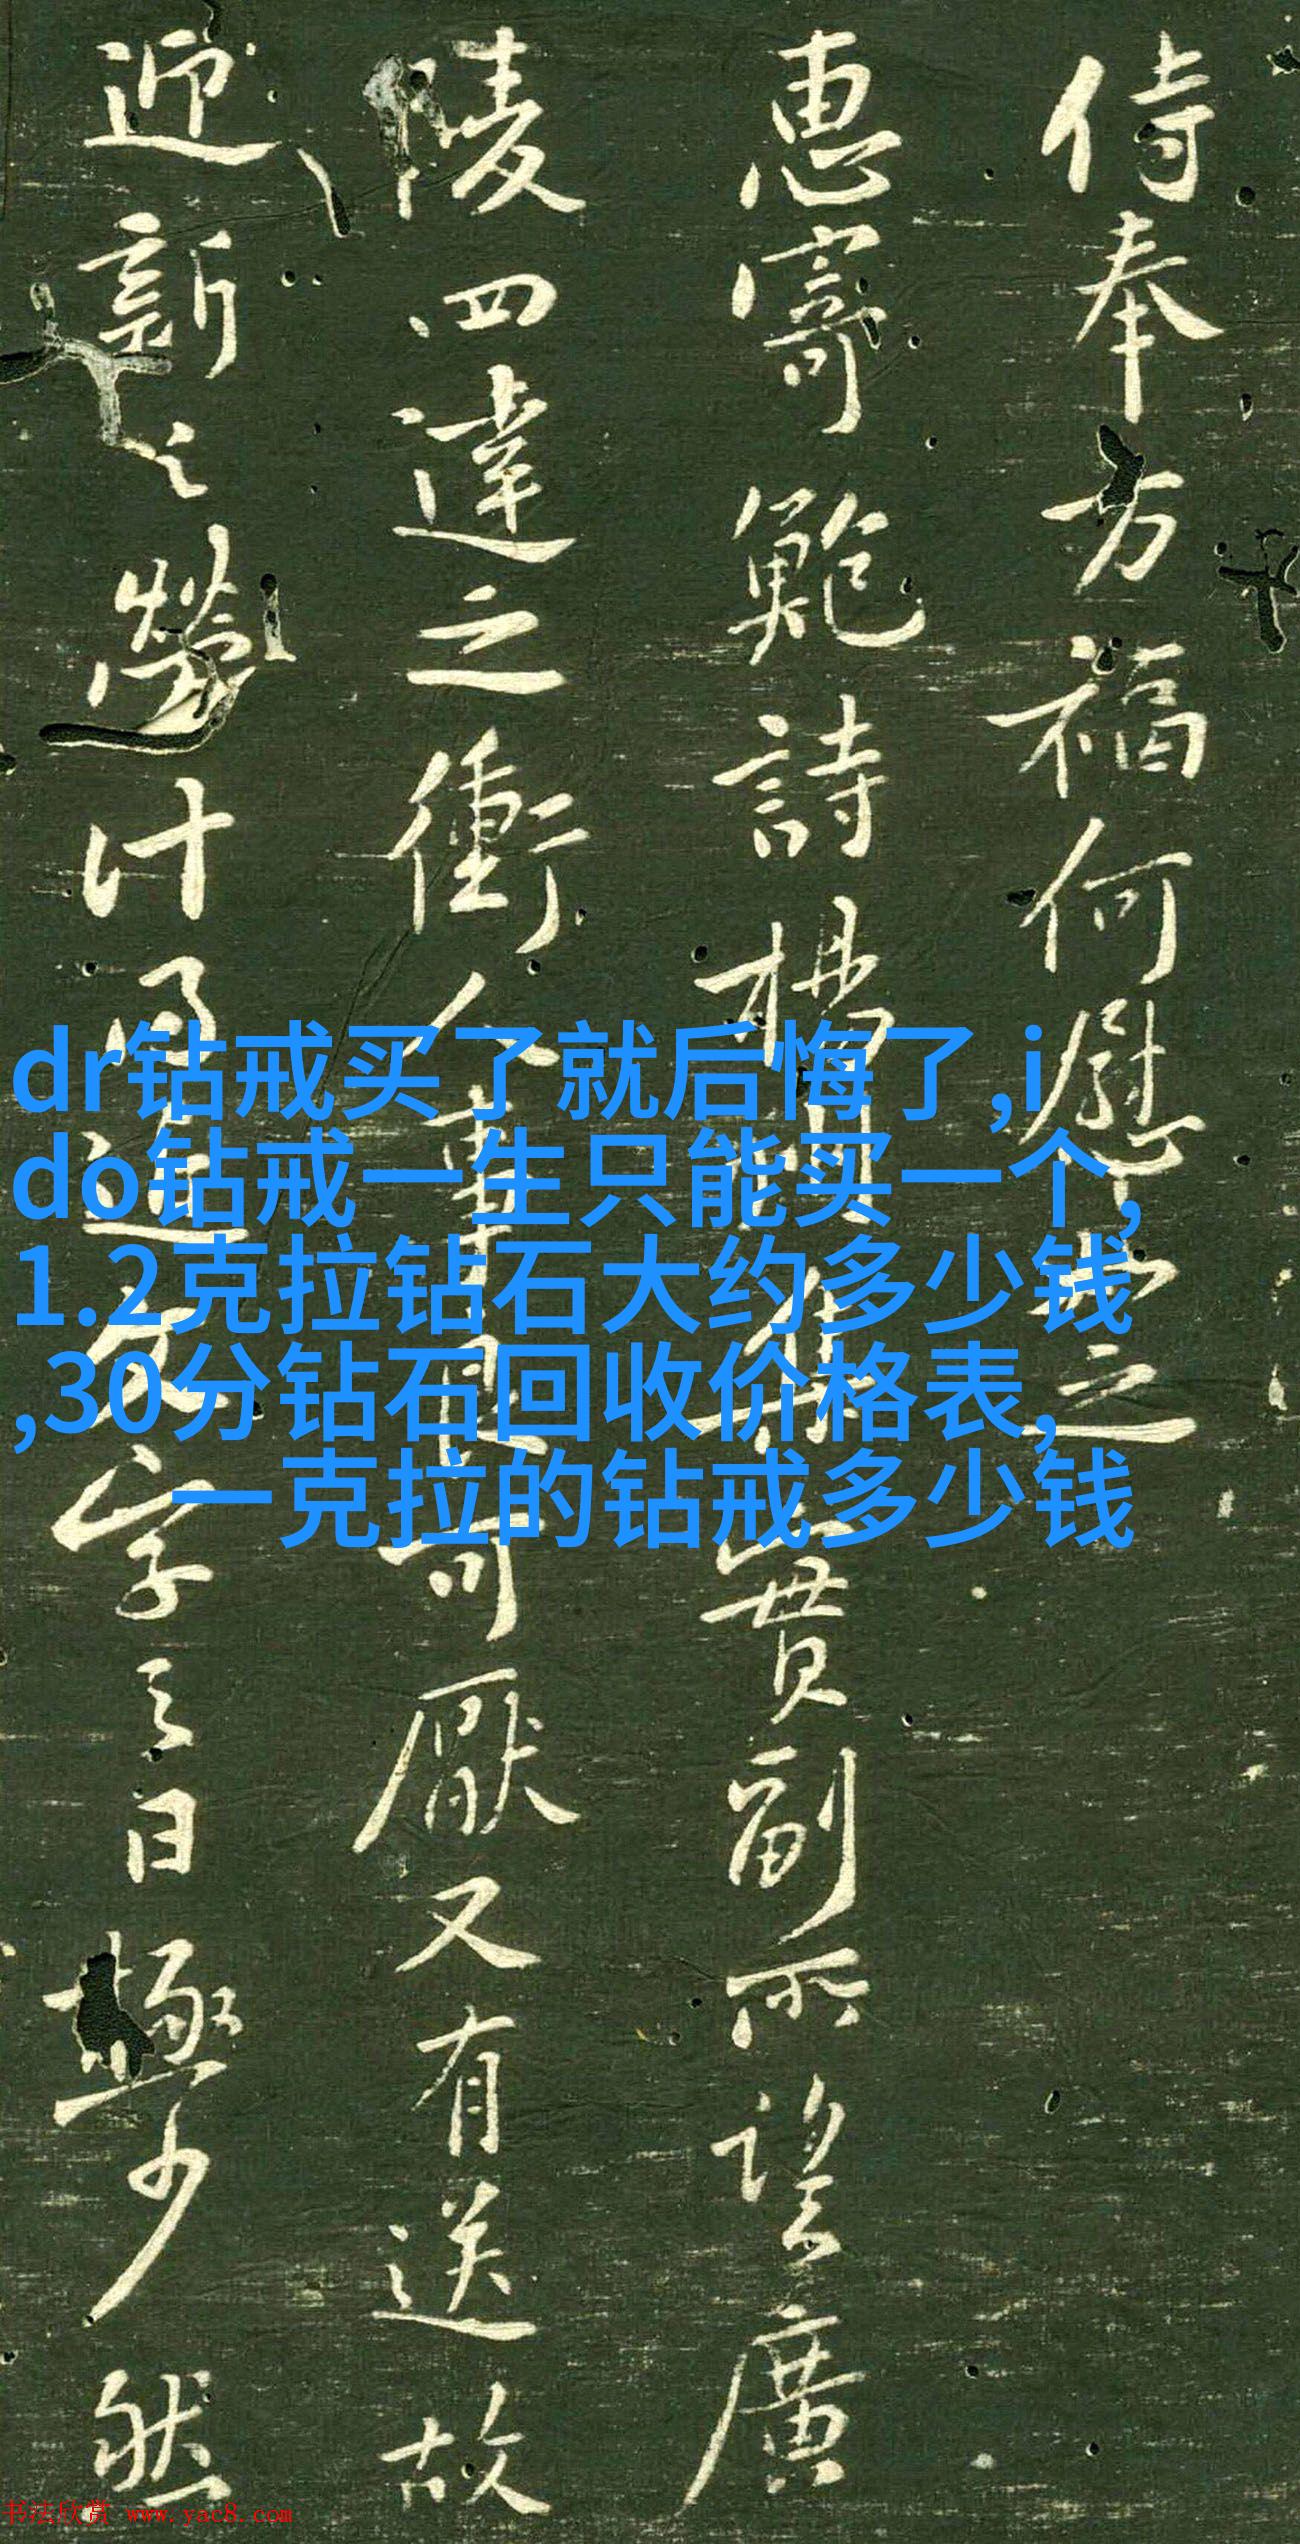 侍奉方福何慰如之
惠寄鮑詩楊集實副所望廣
陵四達之衝人事良可厭又有送故
迎新之勞計文字之日極少然
dr钻戒买了就后悔了,i
do钻戒一生只能买一个,
1.2克拉钻石大约多少钱
,30分钻石回收价格表,
一克拉的钻戒多少钱
书法欣赏 www.yac8.com